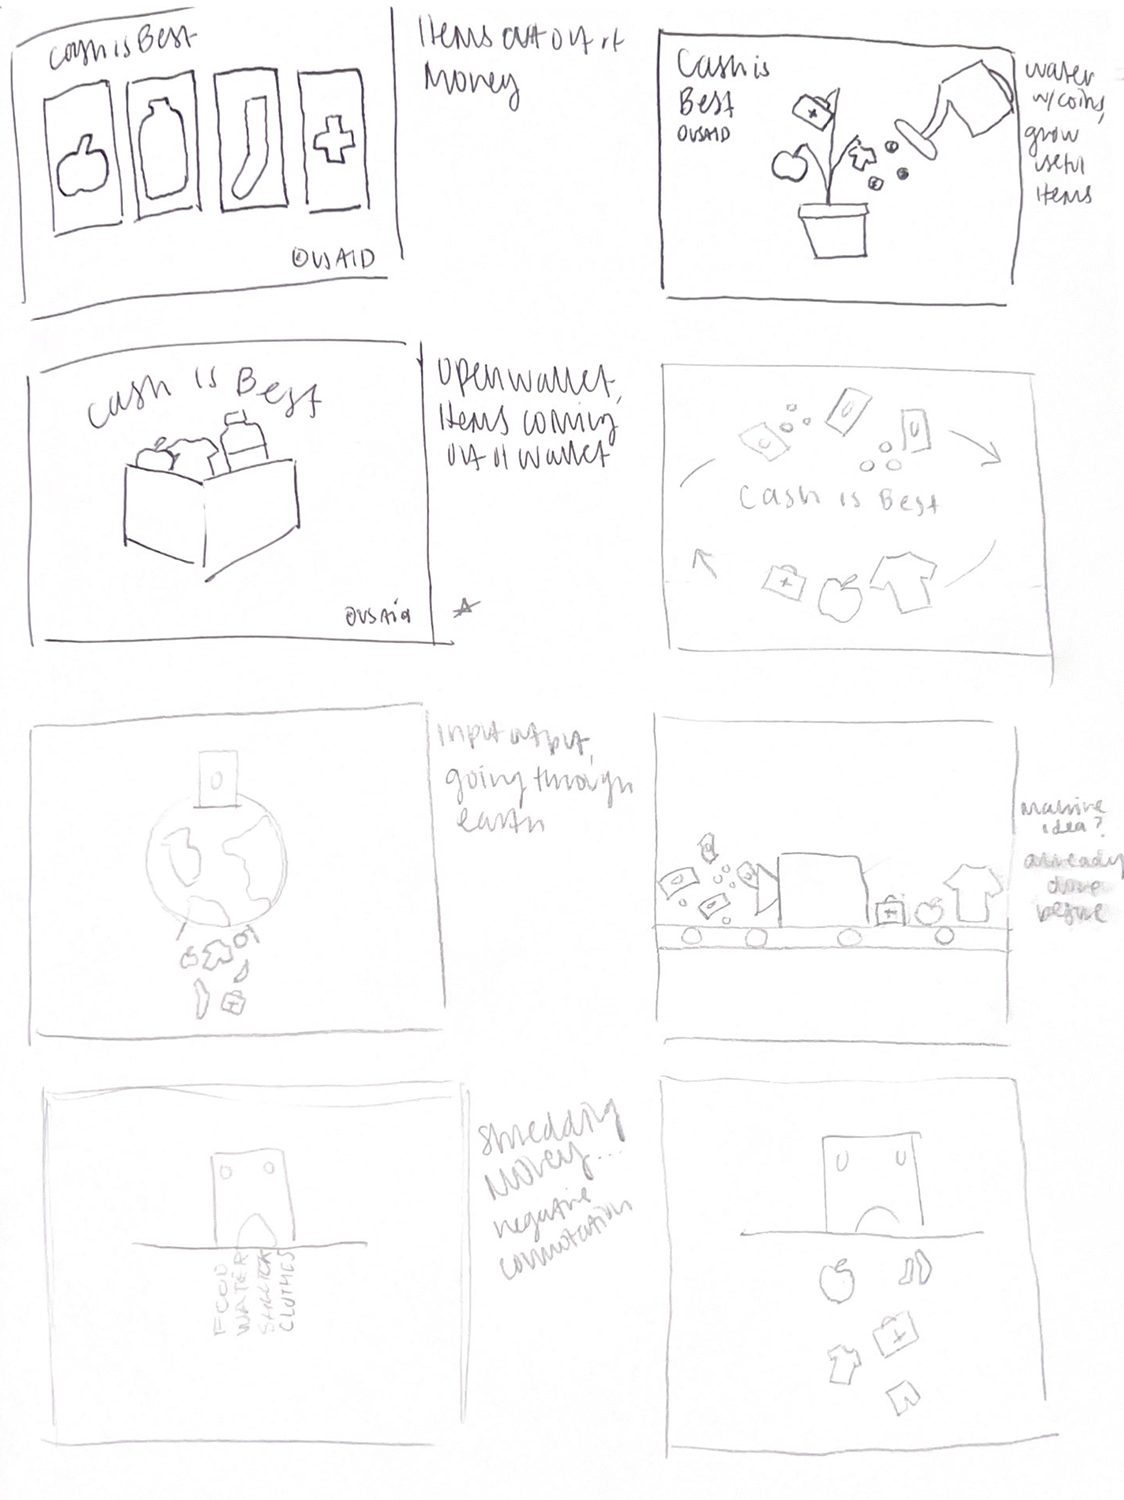 Cash is Best
@USAID
Items cut out of
Money
Cash is
Best
@USAID
water
w/ coins,
grow
useful
items
Cash is Best
@USAid
Open wallet,
items coming
out of wallet
Cash is Best
Input output,
going through
earth
Machine
idea?
already
done
before
FOOD
WATER
SHELTER
CLOTHES
Shredding
Money...
negative
connotation